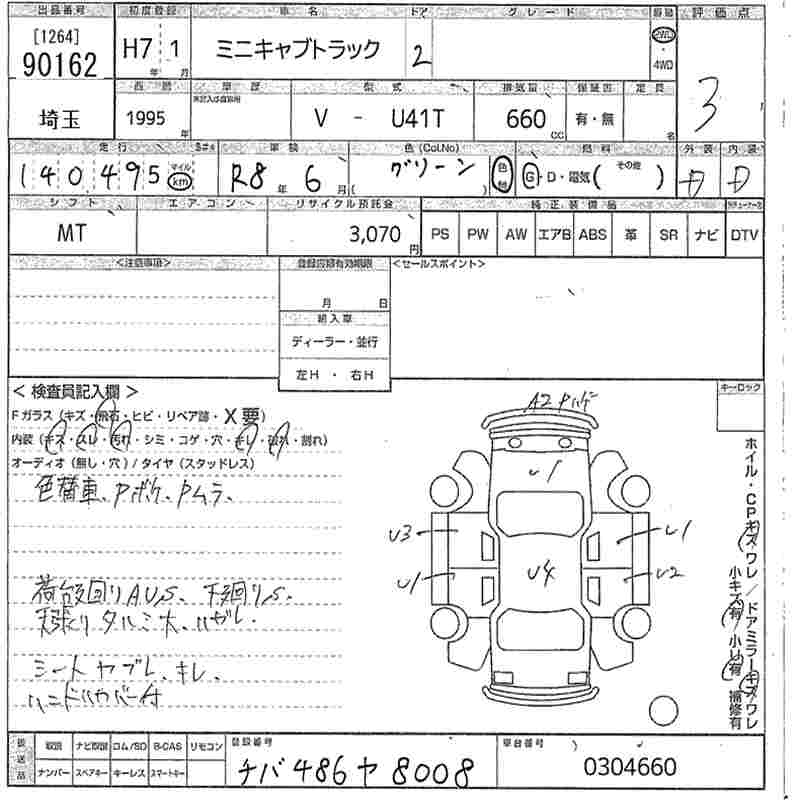 出品番号 初度登録 車名 ドア グレード 駆動 評価点
[1264]
90162 H7 1 年 月 ミニキャブトラック 2 2WD・4WD 3
西暦 車歴 型式 排気量 保証書 定員
埼玉 1995 年 V - U41T 660 CC 有・無 名
走行 車検 色(Col.No) 燃料 外装 内装
140,495 マイル km R8 年 6 月 グリーン ( ) 色替 G・D・電気( その他 ) D D
シフト エアコン リサイクル預託金 純正装備品
MT 3,070 円 PS PW AW エアB ABS 革 SR ナビ DTV
<注意事項> <セールスポイント>
月 日
輸入車
ディーラー・並行
左H ・ 右H
< 検査員記入欄 > キーロック
Fガラス (キズ・飛石・ヒビ・リペア跡・X要)
内装 (キズ・スレ・汚れ・シミ・コゲ・穴・キレ・破れ・割れ)
オーディオ (無し・穴) / タイヤ (スタッドレス)
色替車、Pボケ、Pムラ、
荷台回りAUS、下廻りS、
天張りタルミ大、ハガレ、
シートヤブレ、キレ、
ハンドルカバー付
A2 Pハゲ
U1
U3 U1
U4
U1 U2
ホイル・CPキズ・ワレ / ドアミラーキズ・ワレ
小キズ有 / 小U有 / 補修有
後送品 取説 ナビ取説 ロム/SD B-CAS リモコン 登録番号 車台番号
ナンバー スペアキー キーレス スマートキー チバ 486 ヤ 8008 0304660